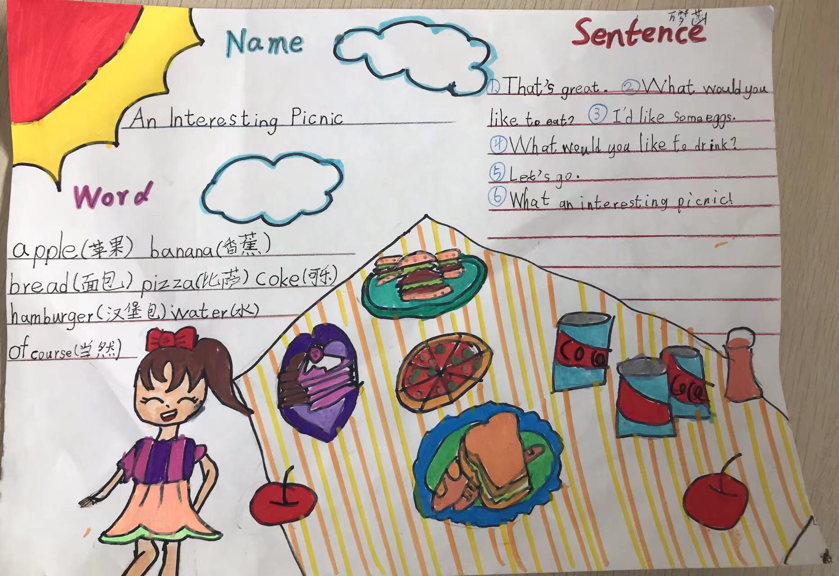 Name
An Interesting Picnic
Word
apple(苹果) banana(香蕉)
bread(面包) pizza(比萨) Coke(可乐)
hamburger(汉堡包) water(水)
of course(当然)
Sentence
① That's great. ② What would you
like to eat? ③ I'd like some eggs.
④ What would you like to drink?
⑤ Let's go.
⑥ What an interesting picnic!
Coca
Coca